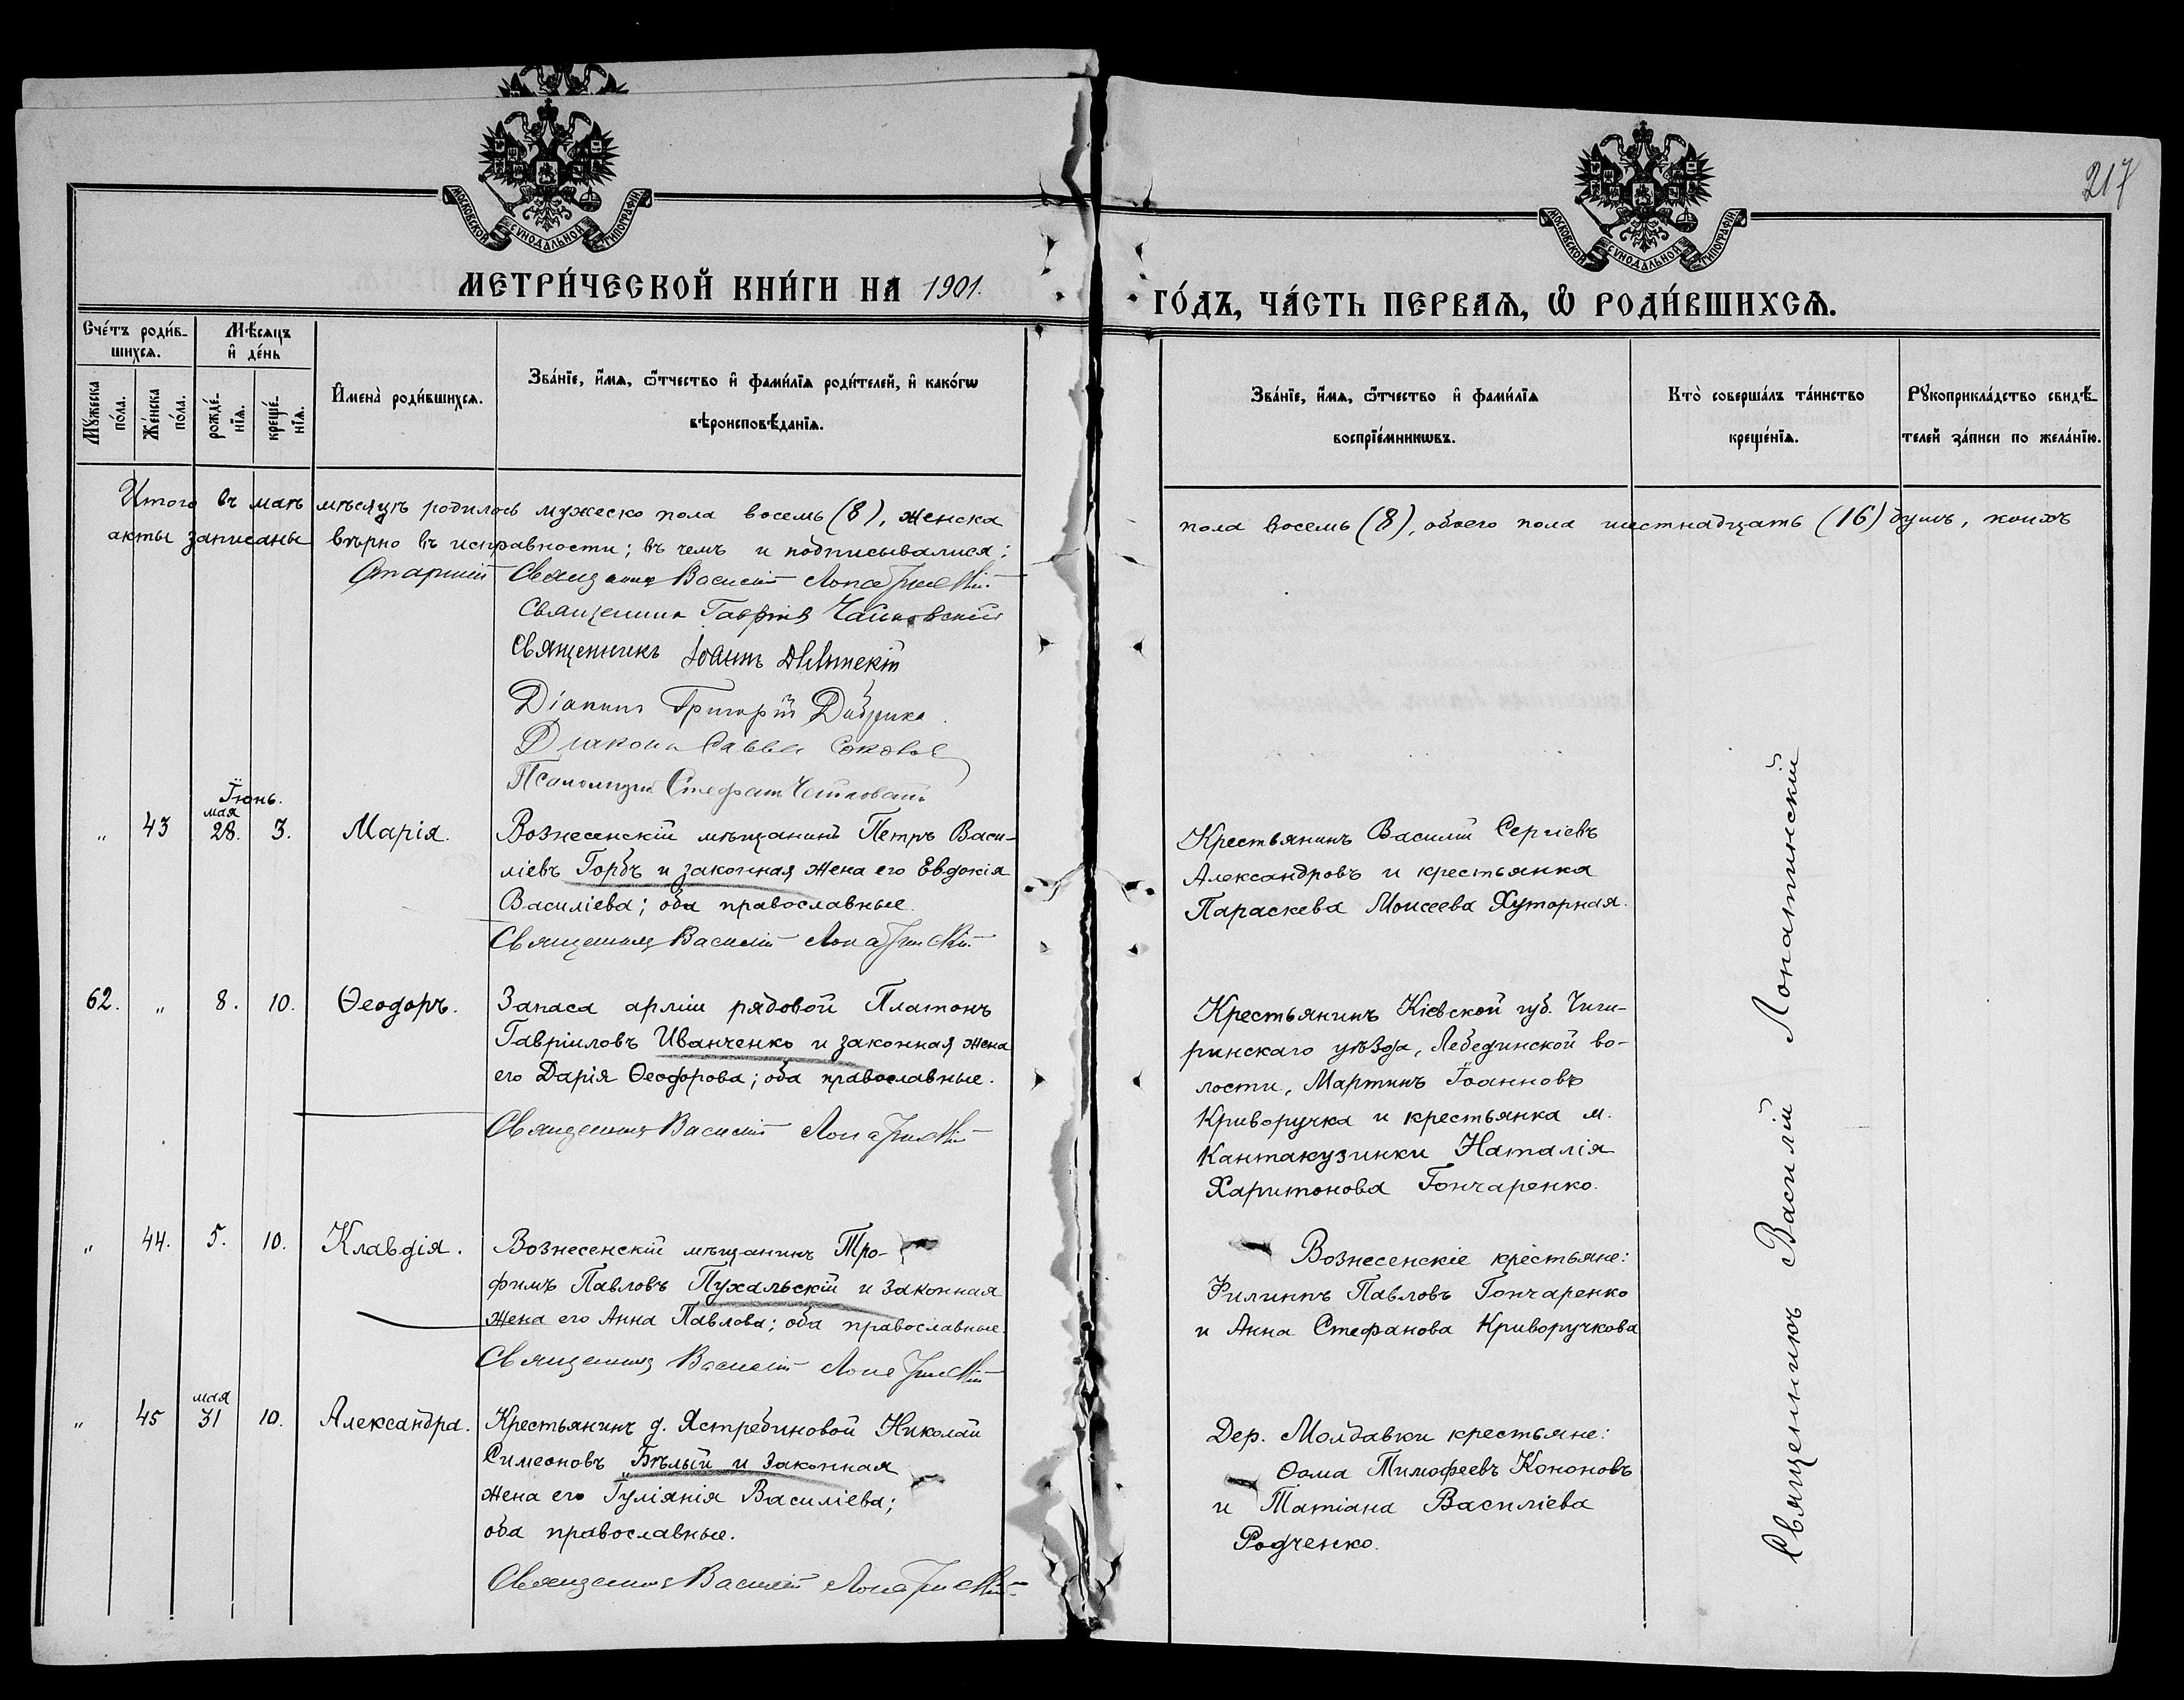 217
МОСКОВСКОЙ СѴНОДАЛЬНОЙ ТИПОГРАФІИ
МОСКОВСКОЙ СѴНОДАЛЬНОЙ ТИПОГРАФІИ
МЕТРИ́ЧЕСКОЙ КНИ́ГИ НА 1901. ГО́ДЪ, ЧА́СТЬ ПЕРВАѦ, Ѡ РОДИ́ВШИХСѦ.
Сче́тъ роди́в-
шихсѧ.
Мꙋ́жеска
по́ла.
Же́нска
по́ла.
Мѣ́сѧцъ
и҆ де́нь
рожде́-
нїѧ.
креще́-
нїѧ.
И҆мена̀ роди́вшихсѧ.
Зва́нїе, и҆́мѧ, ѻ҆́тчество и҆ фами́лїѧ роди́телей, и҆ како́гѡ
вѣроисповѣ́данїѧ.
Зва́нїе, и҆́мѧ, ѻ҆́тчество и҆ фами́лїѧ
воспрїе́мникѡвъ.
Кто̀ соверша́лъ та́инство
креще́нїѧ.
Рꙋкоприкла́дство свидѣ́-
телей за́писи по жела́нїю.
Итого въ маѣ мѣсяцѣ родилось мужеско пола восемь (8), женска пола восемь (8), обоего пола шестнадцать (16) душъ, коихъ
акты записаны вѣрно въ исправности; въ чемъ и подписывалися:
Старшій Священникъ Василій Лопатинскій
Священникъ Гавріилъ Чайковскій
Священникъ Іоаннъ
Діаконъ Григорій
Діаконъ Савва
Псаломщикъ Стефанъ
Іюнь.
" 43 мая 28. 3. Марія.
Вознесенскій мѣщанинъ Петръ Васи-
ліевъ Горбъ и законная жена его Евдокія
Василіева; оба православные.
Священникъ Василій Лопатинскій
Крестьянинъ Василій Сергіевъ
Александровъ и крестьянка
Параскева Моисеева Хуторная.
62. " 8. 10. Ѳеодоръ.
Запаса арміи рядовой Платонъ
Гавріиловъ Иванченко и законная жена
его Дарія Ѳеодорова; оба православные.
Священникъ Василій Лопатинскій
Крестьянинъ Кіевской губ. Чиги-
ринскаго уѣзда, Лебединской во-
лости, Мартинъ Іоанновъ
Криворучка и крестьянка м.
Кантакузинки Наталія
Харитонова Гончаренко.
" 44. 5. 10. Клавдія.
Вознесенскій мѣщанинъ Тро-
фимъ Павловъ Пухальскій и законная
жена его Анна Павлова; оба православные.
Священникъ Василій Лопатинскій
Вознесенскіе крестьяне:
Филиппъ Павловъ Гончаренко
и Анна Стефанова Криворучкова
" 45 мая 31 10. Александра.
Крестьянинъ д. Ястребиновой Николай
Симеоновъ Бѣлый и законная
жена его Іуліянія Василіева;
оба православные.
Священникъ Василій Лопатинскій
Дер. Молдавки крестьяне:
Ѳома Тимофеевъ Кононовъ
и Татіана Василіева
Родченко.
Священникъ Василій Лопатинскій